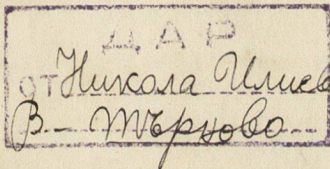 ДАР
от Никола Илиев
В - Търново